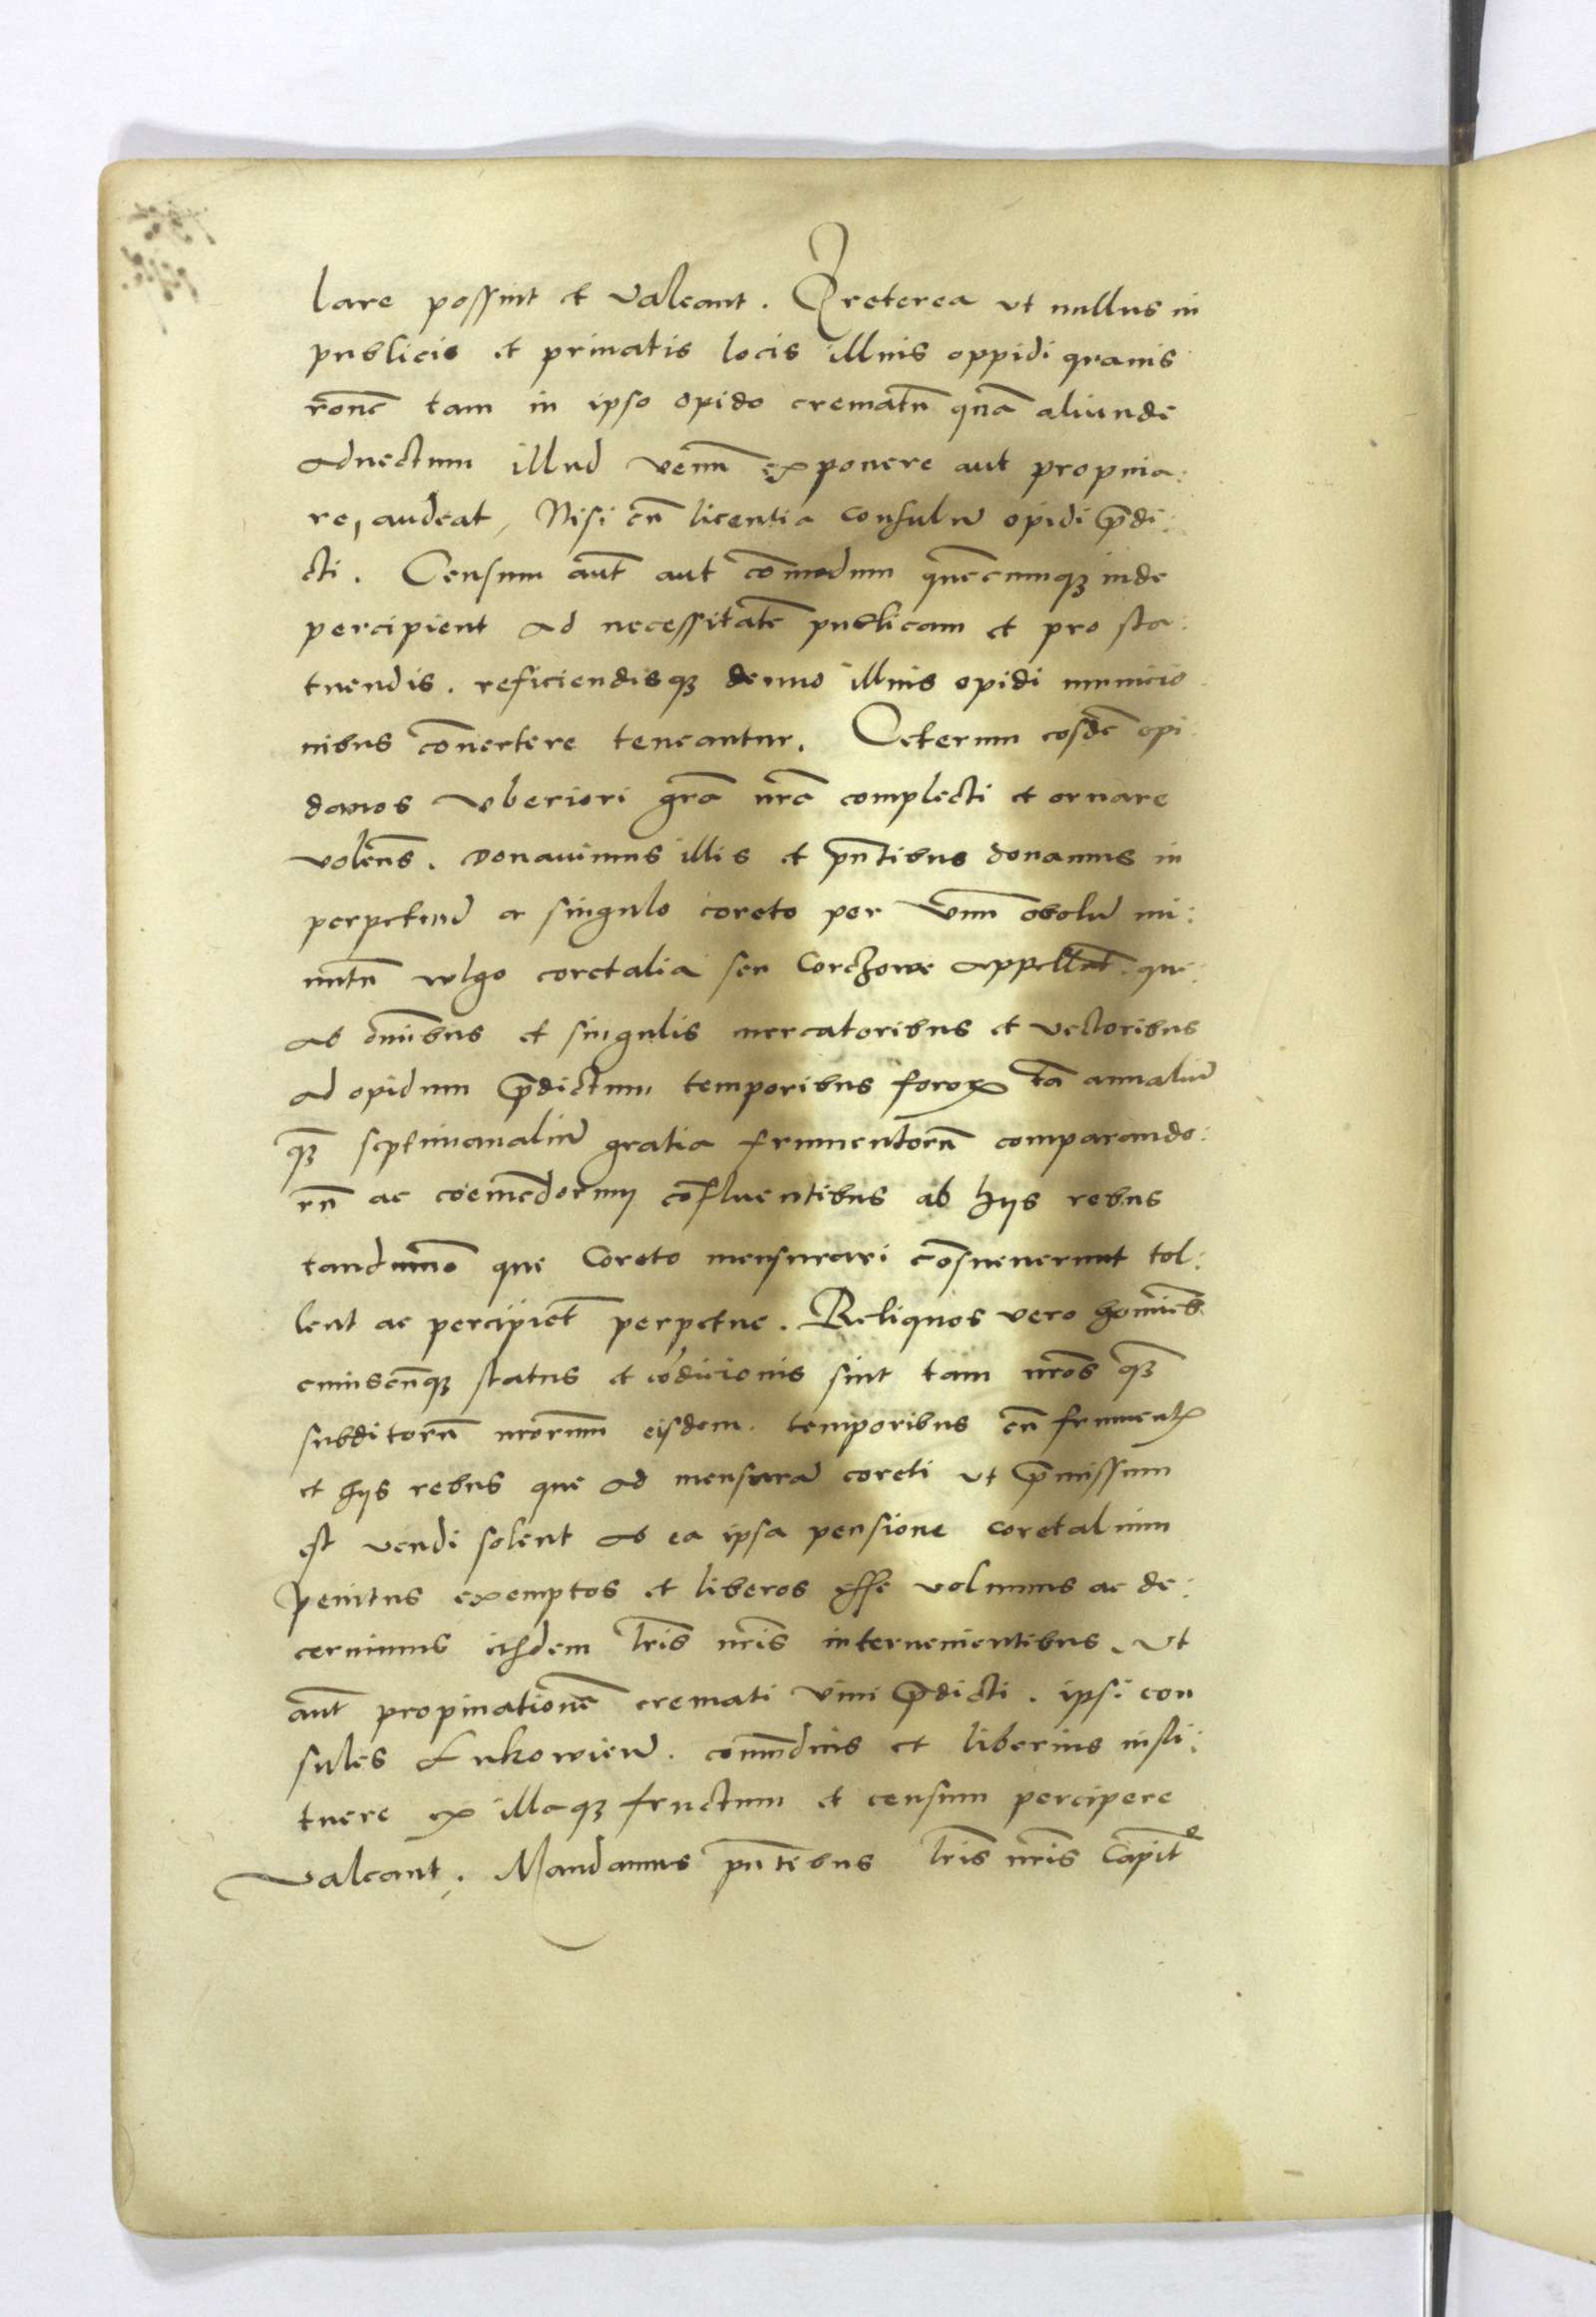 lare possint et valeant. Preterea ut nullus in
publicis et privatis locis illius oppidi quavis
rone tam in ipso opido crematu qua aliunde
advectum illud venu exponere aut propina:
re, audeat, Nisi cu licentia consulu opidi pdi:
cti. Censum aut aut comodum quecumq; inde
percipient ad necessitate publicam et pro sta:
tuendis. reficiendisq; denuo illius opidi municio
nibus convertere teneantur. Ceterum eosde opi
danos uberiori gra nra complecti et ornare
volens. Donavimus illis et pntibus donamus in
perpetuu a singulo coreto per unu obolu mi:
nutu vulgo coretalia seu Corczowe appellat. que
ab omibus et singulis mercatoribus et vectoribus
ad opidum pdictum temporibus foror ta annaliu
q septimanaliu gratia frumentoru comparando:
ru ac coemedorum cofluentibus ab hijs rebus
tandummo que Coreto mensurari cosueverunt tol:
lent ac percipiet perpetue. Reliquos vero homies
cuiuscuq; status et codicionis sint tam nros q
subditoru nrorum eisdem temporibus cu frument
et hijs rebus que ad mensura coreti ut pmissum
est vendi solent ab ea ipsa pensione coretalium
penitus exemptos et liberos esse volumus ac de:
cernimus iisdem lris nris intervenientibus. Ut
aut propinatione cremati vini pdicti. ipsi con
sules Lukowien. comodius et liberius insti:
tuere ex illaq; fructum et censum percipere
valeant. Mandamus pntibus lris nris Capit